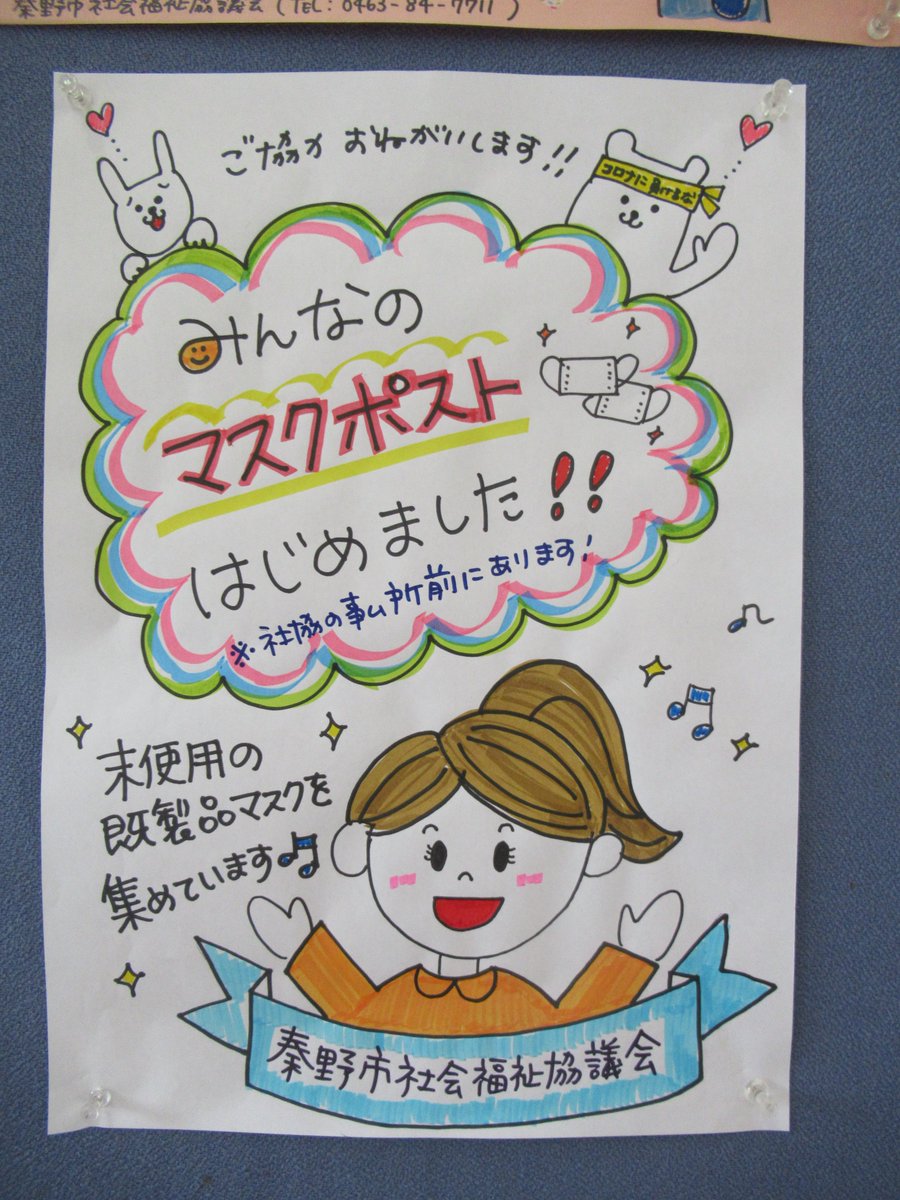 秦野市社会福祉協議会(TEL:0463-84-7711)
ご協力 おねがいします!!
コロナに負けるな
みんなの
マスクポスト
はじめました!!
※社協の事ム所前にあります!
未使用の
既製品マスクを
集めています
秦野市社会福祉協議会